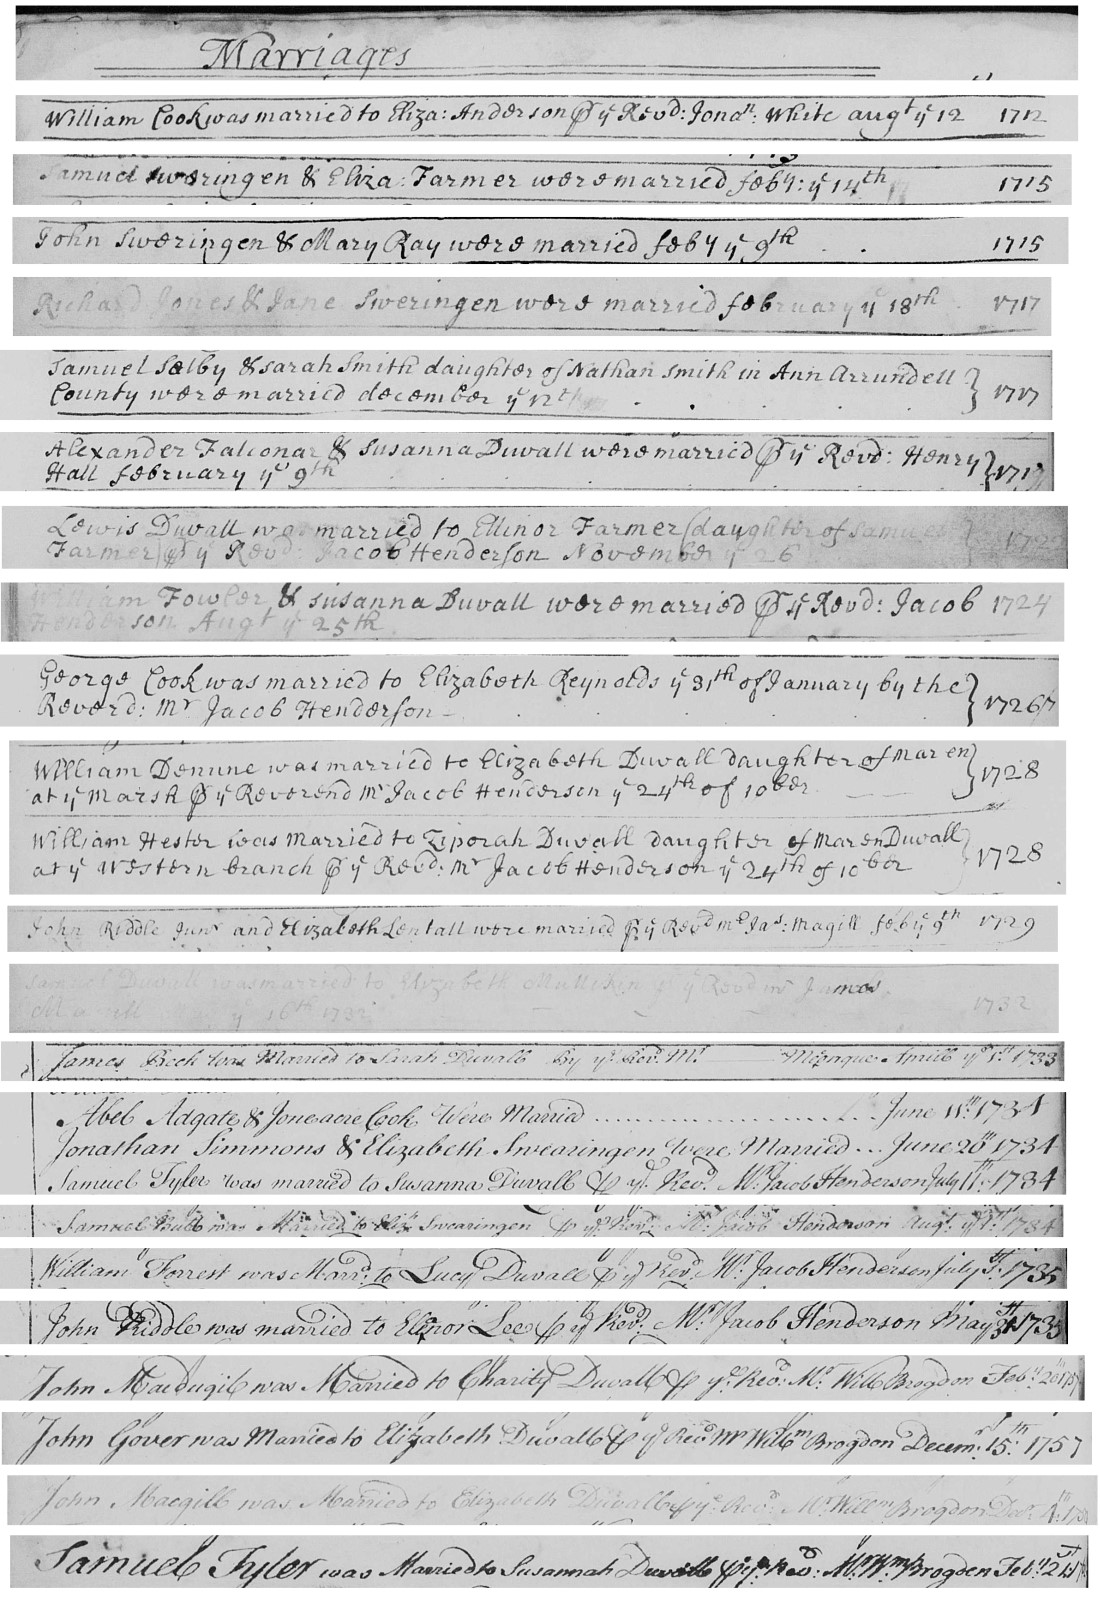 Marriages
William Cook was married to Eliza: Anderson ⅌ yᵉ Revd: Jonaⁿ: White augᵗ yᵉ 12 1712
Samuel Sweringen & Eliza: Farmer were married feby: yᵉ 14th 1715
John Sweringen & Mary Ray were married feby yᵉ 9th 1715
Richard Jones & Jane Sweringen were married february yᵉ 18th 1717
Samuel Selby & sarah Smith daughter of Nathan smith in Ann Arrundell
County were married december yᵉ 12th 1717
Alexander Falconar & susanna Duvall were married ⅌ yᵉ Revd: Henry
Hall february yᵉ 9th
Lewis Duvall was married to Ellinor Farmer (daughter of Samuel
Farmer) ⅌ yᵉ Revd: Jacob Henderson November yᵉ 26
William Fowler & susanna Duvall were married ⅌ yᵉ Revd: Jacob 1724
Henderson Augt yᵉ 25th
George Cook was married to Elizabeth Reynolds yᵉ 31th of January by the
Reverd: Mr Jacob Henderson 1726/7
William Denune was married to Elizabeth Duvall daughter of Maren
at yᵉ Marsh ⅌ yᵉ Reverend Mr Jacob Henderson yᵉ 24th of 10ber 1728
William Hester was Married to Ziporah Duvall daughter of Maren Duvall
at yᵉ Western branch ⅌ yᵉ Revd: Mr Jacob Henderson yᵉ 24th of 10ber 1728
John Riddle Junr and Elizabeth Lentall were married ⅌ yᵉ Revd mr Jas: Magill feb yᵉ 9th 1729
Samuel Duvall was married to Elizabeth Mullikin ⅌ yᵉ Revd mr James
yᵉ 16th 1732 1732
James Beck was Married to Sarah Duvall By yᵉ Revd. Mr. April yᵉ 1st 1733
Abel Adgate & Joneacre Cook Were Married ... June 11th 1734
Jonathan Simmons & Elizabeth Swearingen were Married ... June 20th 1734
Samuel Tyler was married to Susanna Duvall ⅌ yᵉ. Revd. Mr. Jacob Henderson July 1734
Samuel was Married to Eliza Swearingen ⅌ yᵉ Revd. Mr. Jacob Henderson Augt. yᵉ 1734
William Forrest was Marrd: to Lucy Duvall ⅌ yᵉ Revd. Mr. Jacob Henderson July 1735
John Riddle was married to Ellinor Lee ⅌ yᵉ Revd. Mr. Jacob Henderson May 1735
John Macdugil was Married to Charity Duvall ⅌ yᵉ Revd: Mr Will Brogdon Feby 20
John Gover was Married to Elizabeth Duvall ⅌ yᵉ Revd Mr Willm Brogdon Decemr. 15th 1757
John Macgill was Married to Elizabeth Duvall ⅌ yᵉ Revd: Mr Willm Brogdon
Samuel Tyler was Married to Susannah Duvall ⅌ yᵉ Revd: Mr. Wm. Brogden Feby